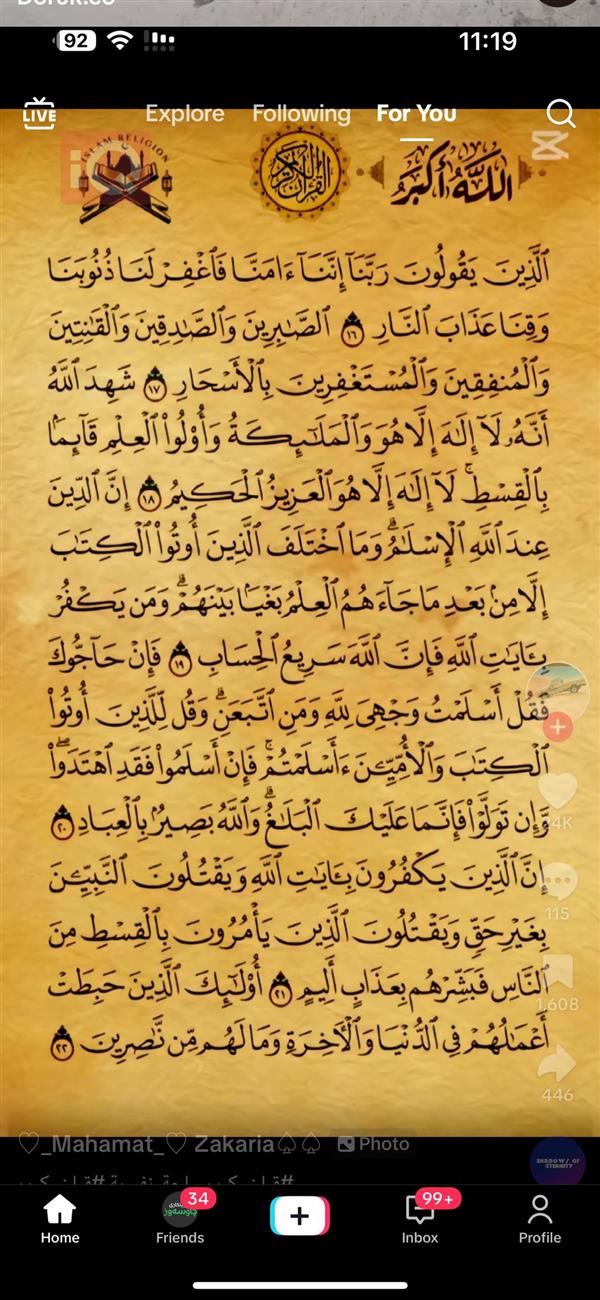 92
11:19
LIVE
Explore Following For You
ISLAM RELIGION
القرآن الكريم
اللَّهُ أَكْبَرُ
ٱلَّذِينَ يَقُولُونَ رَبَّنَآ إِنَّنَآ ءَامَنَّا فَٱغْفِرْ لَنَا ذُنُوبَنَا
وَقِنَا عَذَابَ ٱلنَّارِ ١٦ ٱلصَّٰبِرِينَ وَٱلصَّٰدِقِينَ وَٱلْقَٰنِتِينَ
وَٱلْمُنفِقِينَ وَٱلْمُسْتَغْفِرِينَ بِٱلْأَسْحَارِ ١٧ شَهِدَ ٱللَّهُ
أَنَّهُۥ لَآ إِلَٰهَ إِلَّا هُوَ وَٱلْمَلَٰٓئِكَةُ وَأُو۟لُوا۟ ٱلْعِلْمِ قَآئِمًۢا
بِٱلْقِسْطِۚ لَآ إِلَٰهَ إِلَّا هُوَ ٱلْعَزِيزُ ٱلْحَكِيمُ ١٨ إِنَّ ٱلدِّينَ
عِندَ ٱللَّهِ ٱلْإِسْلَٰمُۗ وَمَا ٱخْتَلَفَ ٱلَّذِينَ أُوتُوا۟ ٱلْكِتَٰبَ
إِلَّا مِنۢ بَعْدِ مَا جَآءَهُمُ ٱلْعِلْمُ بَغْيًۢا بَيْنَهُمْۗ وَمَن يَكْفُرْ
بِـَٔايَٰتِ ٱللَّهِ فَإِنَّ ٱللَّهَ سَرِيعُ ٱلْحِسَابِ ١٩ فَإِنْ حَآجُّوكَ
فَقُلْ أَسْلَمْتُ وَجْهِىَ لِلَّهِ وَمَنِ ٱتَّبَعَنِۗ وَقُل لِّلَّذِينَ أُوتُوا۟
ٱلْكِتَٰبَ وَٱلْأُمِّيِّـۧنَ ءَأَسْلَمْتُمْۚ فَإِنْ أَسْلَمُوا۟ فَقَدِ ٱهْتَدَوا۟ۖ
وَّإِن تَوَلَّوْا۟ فَإِنَّمَا عَلَيْكَ ٱلْبَلَٰغُۗ وَٱللَّهُ بَصِيرٌۢ بِٱلْعِبَادِ ٢٠
إِنَّ ٱلَّذِينَ يَكْفُرُونَ بِـَٔايَٰتِ ٱللَّهِ وَيَقْتُلُونَ ٱلنَّبِيِّـۧنَ
بِغَيْرِ حَقٍّ وَيَقْتُلُونَ ٱلَّذِينَ يَأْمُرُونَ بِٱلْقِسْطِ مِنَ
ٱلنَّاسِ فَبَشِّرْهُم بِعَذَابٍ أَلِيمٍ ٢١ أُو۟لَٰٓئِكَ ٱلَّذِينَ حَبِطَتْ
أَعْمَٰلُهُمْ فِى ٱلدُّنْيَا وَٱلْأَخِرَةِ وَمَا لَهُم مِّن نَّٰصِرِينَ ٢٢
115
1,608
446
♡_Mahamat_♡ Zakaria♤♤ Photo
SHADOW/ OF
ETERNITY
34
99+
Home Friends Inbox Profile